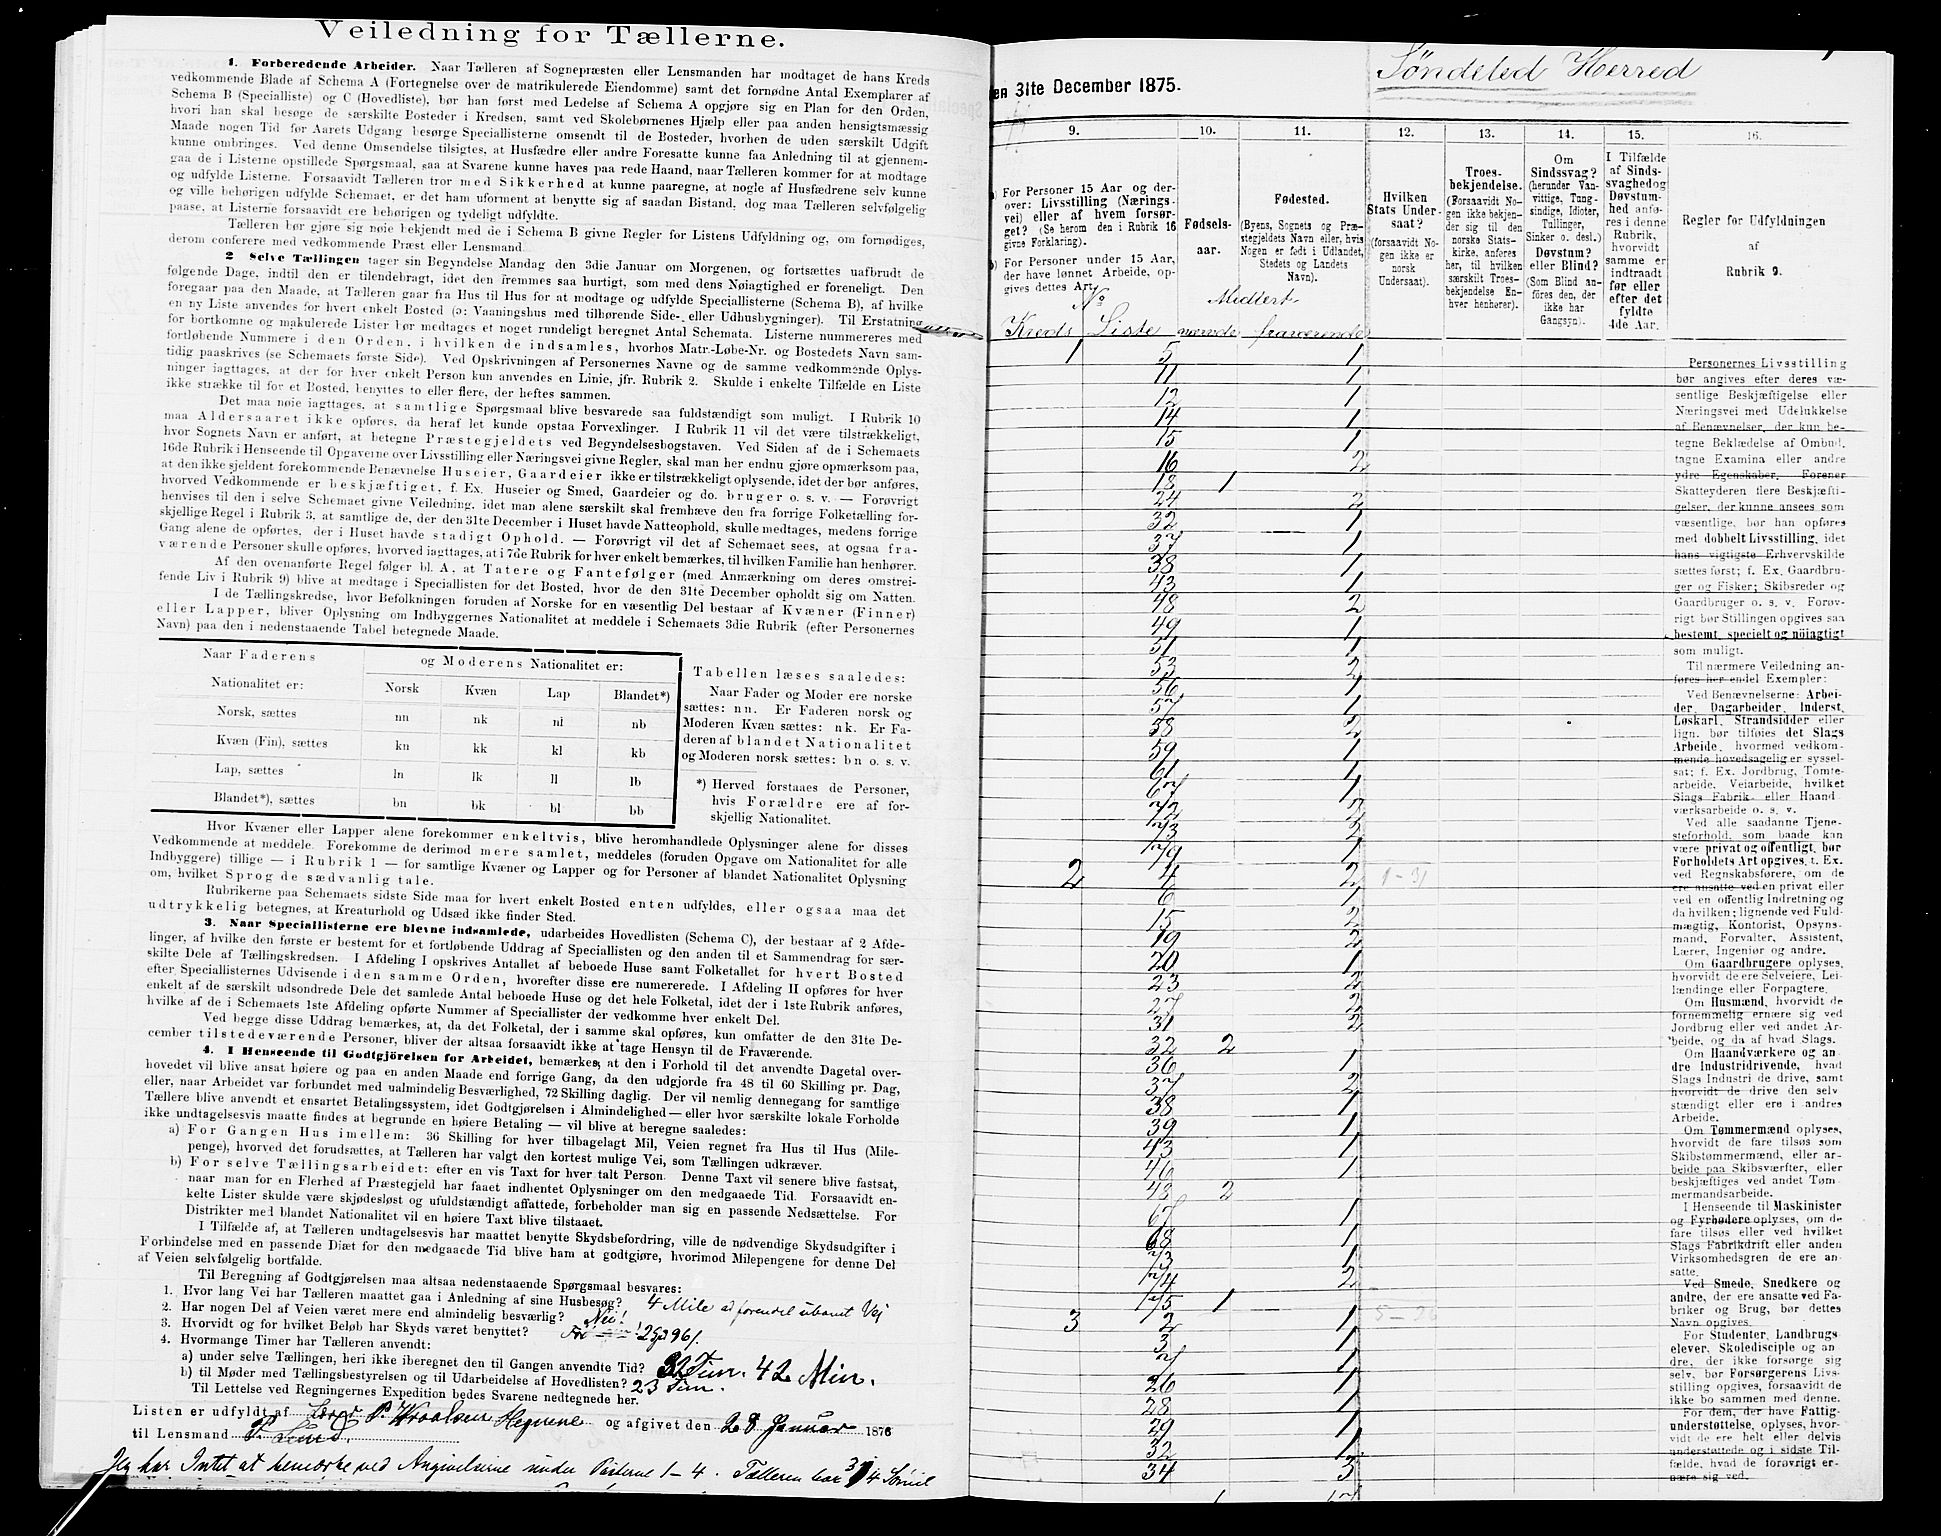 Veiledning for Tællerne.
1. Forberedende Arbeider. Naar Tælleren af Sognepræsten eller Lensmanden har modtaget de hans Kreds
vedkommende Blade af Schema A (Fortegnelse over de matrikulerede Eiendomme) samt det fornødne Antal Exemplarer af
Schema B (Specialliste) og C (Hovedliste), bør han først med Ledelse af Schema A opgjøre sig en Plan for den Orden,
hvori han skal besøge de særskilte Bosteder i Kredsen, samt ved Skolebørnenes Hjælp eller paa anden hensigtsmæssig
Maade nogen Tid før Aarets Udgang besørge Speciallisterne omsendt til de Bosteder, hvorhen de uden særskilt Udgift
kunne ombringes. Ved denne Omsendelse tilsigtes, at Husfædre eller andre Foresatte kunne faa Anledning til at gjennem-
gaa de i Listerne opstillede Spørgsmaal, saa at Svarene kunne haves paa rede Haand, naar Tælleren kommer for at modtage
og udfylde Listerne. Forsaavidt Tælleren tror med Sikkerhed at kunne paaregne, at nogle af Husfædrene selv kunne
og ville behørigen udfylde Schemaet, er det ham uforment at benytte sig af saadan Bistand, dog maa Tælleren selvfølgelig
paase, at Listerne forsaavidt ere behørigen og tydeligt udfyldte.
Tælleren bør gjøre sig nøie bekjendt med de i Schema B givne Regler for Listens Udfyldning og, om fornødiges,
derom conferere med vedkommende Præst eller Lensmand.
2 Selve Tællingen tager sin Begyndelse Mandag den 3die Januar om Morgenen, og fortsættes uafbrudt de
følgende Dage, indtil den er tilendebragt, idet den fremmes saa hurtigt, som med dens Nøiagtighed er foreneligt. Den
foregaar paa den Maade, at Tælleren gaar fra Hus til Hus for at modtage og udfylde Speciallisterne (Schema B), af hvilke
en ny Liste anvendes for hvert enkelt Bosted (ɔ: Vaaningshus med tilhørende Side- eller Udhusbygninger). Til Erstatning
for bortkomne og makulerede Lister bør medtages et noget rundeligt beregnet Antal Schemata. Listerne nummereres med
fortløbende Nummere i den Orden, i hvilken de indsamles, hvorhos Matr.-Løbe-Nr. og Bostedets Navn sam-
tidig paaskrives (se Schemaets første Side). Ved Opskrivningen af Personernes Navne og de samme vedkommende Oplys-
ninger iagttages, at der for hver enkelt Person kun anvendes en Linie, jfr. Rubrik 2. Skulde i enkelte Tilfælde en Liste
ikke strække til for et Bosted, benyttes to eller flere, der heftes sammen.
Det maa nøie iagttages, at samtlige Spørgsmaal blive besvarede saa fuldstændigt som muligt. I Rubrik 10
maa Aldersaaret ikke opføres, da heraf let kunde opstaa Forvexlinger. I Rubrik 11 vil det være tilstrækkeligt,
hvor Sognets Navn er anført, at betegne Præstegjeldets ved Begyndelsesbogstaven. Ved Siden af de i Schemaets
16de Rubrik i Henseende til Opgaverne over Livsstilling eller Næringsvei givne Regler, skal man her endnu gjøre opmærksom paa,
at den ikke sjeldent forekommende Benævnelse Huseier, Gaardeier ikke er tilstrækkeligt oplysende, idet der bør anføres,
hvorved Vedkommende er beskjæftiget, f. Ex. Huseier og Smed, Gaardeier og do. bruger o. s. v. — Forøvrigt
henvises til den i selve Schemaet givne Veiledning, idet man alene særskilt skal fremhæve den fra forrige Folketælling for-
skjellige Regel i Rubrik 3, at samtlige de, der den 31te December i Huset havde Natteophold, skulle medtages, medens forrige
Gang alene de opførtes, der i Huset havde stadigt Ophold. — Forøvrigt vil det af Schemaet sees, at ogsaa fra-
værende Personer skulle opføres, hvorved iagttages, at i 7de Rubrik for hver enkelt bemærkes, til hvilken Familie han henhører.
Af den ovenanførte Regel følger bl. A. at Tatere og Fantefølger (med Anmærkning om deres omstrei-
fende Liv i Rubrik 9) blive at medtage i Speciallisten for det Bosted, hvor de den 31te December opholdt sig om Natten.
I de Tællingskredse, hvor Befolkningen foruden af Norske for en væsentlig Del bestaar af Kvæner (Finner)
eller Lapper, bliver Oplysning om Indbyggernes Nationalitet at meddele i Schemaets 3die Rubrik (efter Personernes
Navn) paa den i nedenstaaende Tabel betegnede Maade.
Naar Faderens og Moderens Nationalitet er:
Nationalitet er: Norsk Kvæn Lap Blandet*)
Norsk, sættes nn nk nl nb
Kvæn (Fin), sættes kn kk kl kb
Lap, sættes ln lk ll lb
Blandet*), sættes bn bk bl bb
Tabellen læses saaledes:
Naar Fader og Moder ere norske
sættes: nn. Er Faderen norsk og
Moderen Kvæn sættes: nk. Er Fa-
deren af blandet Nationalitet
og Moderen norsk sættes: bn o. s. v.
*) Herved forstaaes de Personer,
hvis Forældre ere af for-
skjellig Nationalitet.
Hvor Kvæner eller Lapper alene forekommer enkeltvis, blive heromhandlede Oplysninger alene for disses
Vedkommende at meddele. Forekomme de derimod mere samlet, meddeles (foruden Opgave om Nationalitet for alle
Indbyggere) tillige — i Rubrik 1 — for samtlige Kvæner og Lapper og for Personer af blandet Nationalitet Oplysning
om, hvilket Sprog de sædvanlig tale.
Rubrikerne paa Schemaets sidste Side maa for hvert enkelt Bosted enten udfyldes, eller ogsaa maa det
udtrykkelig betegnes, at Kreaturhold og Udsæd ikke finder Sted.
3. Naar Speciallisterne ere blevne indsamlede, udarbeides Hovedlisten (Schema C), der bestaar af 2 Afde-
linger, af hvilke den første er bestemt for et fortløbende Uddrag af Speciallisten og den anden til et Sammendrag for sær-
skilte Dele af Tællingskredsen. I Afdeling I opskrives Antallet af beboede Huse samt Folketallet for hvert Bosted
efter Speciallisternes Udvisende i den samme Orden, hvorefter disse ere numererede. I Afdeling II opføres for hver
enkelt af de særskilt udsondrede Dele det samlede Antal beboede Huse og det hele Folketal, idet der i 1ste Rubrik anføres,
hvilke af de i Schemaets 1ste Afdeling opførte Nummer af Speciallister der vedkomme hver enkelt Del.
Ved begge disse Uddrag bemærkes, at, da det Folketal, der i samme skal opføres, kun omfatter de den 31te De-
cember tilstedeværende Personer, bliver der altsaa forsaavidt ikke at tage Hensyn til de Fraværende.
4. I Henseende til Godtgjörelsen for Arbeidet, bemærkes, at den i Forhold til det anvendte Dagetal over-
hovedet vil blive ansat høiere og paa en anden Maade end forrige Gang, da den udgjorde fra 48 til 60 Skilling pr. Dag,
eller, naar Arbeidet var forbundet med ualmindelig Besværlighed, 72 Skilling daglig. Der vil nemlig dennegang for samtlige
Tællere blive anvendt et ensartet Betalingssystem, idet Godtgjörelsen i Almindelighed — eller hvor særskilte lokale Forholde
ikke undtagelsesvis maatte findes at begrunde en høiere Betaling — vil blive at beregne saaledes:
a) For Gangen Hus imellem: 36 Skilling for hver tilbagelagt Mil, Veien regnet fra Hus til Hus (Mile-
penge), hvorved det forudsættes, at Tælleren har valgt den kortest mulige Vei, som Tællingen udkræver.
b) For selve Tællingsarbeidet: efter en vis Taxt for hver talt Person. Denne Taxt vil senere blive fastsat,
naar man for en Flerhed af Præstegjeld har faaet indhentet Oplysninger om den medgaaede Tid. Forsaavidt en-
kelte Lister skulde være skjødesløst og ufuldstændigt affattede, forbeholder man sig en passende Nedsættelse. For
Distrikter med blandet Nationalitet vil en høiere Taxt blive tilstaaet.
I Tilfælde af, at Tælleren undtagelsesvis har maattet benytte Skydsbefordring, ville de nødvendige Skydsudgifter i
Forbindelse med en passende Diæt for den medgaaede Tid blive ham at godtgjøre, hvorimod Milepengene for denne Del
af Veien selvfølgelig bortfalde.
Til Beregning af Godtgjørelsen maa altsaa nedenstaaende Spørgsmaal besvares:
1. Hvor lang Vei har Tælleren maattet gaa i Anledning af sine Husbesøg? 4 Mile
2. Har nogen Del af Veien været mere end almindelig besværlig? Nei!
3. Hvorvidt og for hvilket Beløb har Skyds været benyttet?
4. Hvormange Timer har Tælleren anvendt:
a) under selve Tællingen, heri ikke iberegnet den til Gangen anvendte Tid? 32 Tim. 42 Min.
b) til Møder med Tællingsbestyrelsen og til Udarbeidelse af Hovedlisten? 23 Tim.
Til Lettelse ved Regningernes Expedition bedes Svarene nedtegnede her.
Listen er udfyldt af og afgivet den 28 Januar 1876
til Lensmand P. Lund.
Jeg har Intet at bemærke ved Angivelserne under Posterne 1–4. Tælleren har
en 31te December 1875.
Söndeled Herred
9. 10. 11. 12. 13. 14. 15. 16.
a) For Personer 15 Aar og der-
over: Livsstilling (Nærings-
vei) eller af hvem forsør-
get? (Se herom den i Rubrik 16
givne Forklaring).
b) For Personer under 15 Aar,
der have lønnet Arbeide, op-
gives dettes Art.
Fødsels-
aar.
Fødested.
(Byens, Sognets og Præ-
stegjeldets Navn eller, hvis
Nogen er født i Udlandet,
Stedets og Landets
Navn).
Hvilken
Stats Under-
saat?
(forsaavidt No-
gen ikke er
norsk
Undersaat).
Troes-
bekjendelse.
(Forsaavidt No-
gen ikke bekjen-
der sig til den
norske Stats-
kirke, anføres
her, til hvilken
særskilt Troes-
bekjendelse En-
hver henhører).
Om
Sindssvag?
(herunder Van-
vittige, Tung-
sindige, Idioter,
Tullinger,
Sinker o. desl.)
Døvstum?
eller Blind?
(Som Blind an-
føres den, der
ikke har
Gangsyn).
I Tilfælde
af Sinds-
svaghed og
Døvstum-
hed anfø-
res i denne
Rubrik,
hvorvidt
samme er
indtraadt
før eller
efter det
fyldte
4de Aar.
Regler for Udfyldningen
af
Rubrik 9.
No Midlert.
Kreds Liste nærvde fraværende
1 5 1
11 1
12 1
14 1
15 1
16 2
18 1
24 2
32 1
37 1
38 1
43 1
48 2
49 1
51 1
53 2
56 1
57 1
58 2
59 1
61 1
67 1
72 2
73 2
79 1
2 4 2 1–31
6 1
15 2
19 2
20 1
23 2
27 2
31 2
32 2
36 1
37 2
38 1
39 1
43 1
46 1
48 2
67 1
68 1
73 1
74 2
75 1
3 2 1 5–26
3 1
7 1
26 1
28 1
29 1
32 1
34 3
Personernes Livsstilling
bør angives efter deres væ-
sentlige Beskjæftigelse eller
Næringsvei med Udelukkelse
af Benævnelser, der kun be-
tegne Beklædelse af Ombud,
tagne Examina eller andre
ydre Egenskaber. Forener
Skatteyderen flere Beskjæfti-
gelser, der kunne ansees som
væsentlige, bør han opføres
med dobbelt Livsstilling, idet
hans vigtigste Erhvervskilde
sættes først; f. Ex. Gaardbru-
ger og Fisker; Skibsreder og
Gaardbruger o. s. v. Forøv-
rigt bør Stillingen opgives saa
bestemt, specielt og nöiagtigt
som muligt.
Til nærmere Veiledning an-
føres her endel Exempler:
Ved Benævnelserne: Arbei-
der, Dagarbeider, Inderst,
Løskarl, Strandsidder eller
lign. bør tilføies det Slags
Arbeide, hvormed vedkom-
mende hovedsagelig er syssel-
sat; f. Ex. Jordbrug, Tomte-
arbeide, Veiarbeide, hvilket
Slags Fabrik- eller Haand-
værksarbeide o. s. v.
Ved alle saadanne Tjene-
steforhold, som baade kan
være privat og offentligt, bør
Forholdets Art opgives, t. Ex.
ved Regnskabsførere, om de
ere ansatte ved en privat eller
ved en offentlig Indretning og
da hvilken; lignende ved Fuld-
mægtig, Kontorist, Opsyns-
mand, Forvalter, Assistent,
Lærer, Ingeniør og andre.
Om Gaardbrugere oplyses,
hvorvidt de ere Selveiere, Lei-
lændinge eller Forpagtere.
Om Husmænd, hvorvidt de
fornemmelig ernære sig ved
Jordbrug eller ved andet Ar-
beide, og da af hvad Slags.
Om Haandværkere og an-
dre Industridrivende, hvad
Slags Industri de drive, samt
hvorvidt de drive den selv
stændigt eller ere i andres
Arbeide.
Om Tømmermænd oplyses,
hvorvidt de fare tilsøs som
Skibstømmermænd, eller ar-
beide paa Skibsværfter, eller
beskjæftiges ved andet Tøm-
mermandsarbeide.
I Henseende til Maskinister
og Fyrbødere oplyses, om de
fare tilsøs eller ved hvilket
Slags Fabrikdrift eller anden
Virksomhedsgren de ere an-
satte.
Ved Smede, Snedkere og
andre, der ere ansatte ved Fa-
briker og Brug, bør dettes
Navn opgives.
For Studenter, Landbrugs-
elever, Skoledisciple og an-
dre, der ikke forsørge sig
selv, bør Forsørgerens Livs-
stilling opgives, forsaavidt de
ikke bo sammen med denne.
For dem, der have Fattig-
understøttelse, oplyses, hvor-
vidt de ere helt eller delvis
understøttede og i sidste Til-
fælde, hvad de forøvrigt er-
nære sig ved.